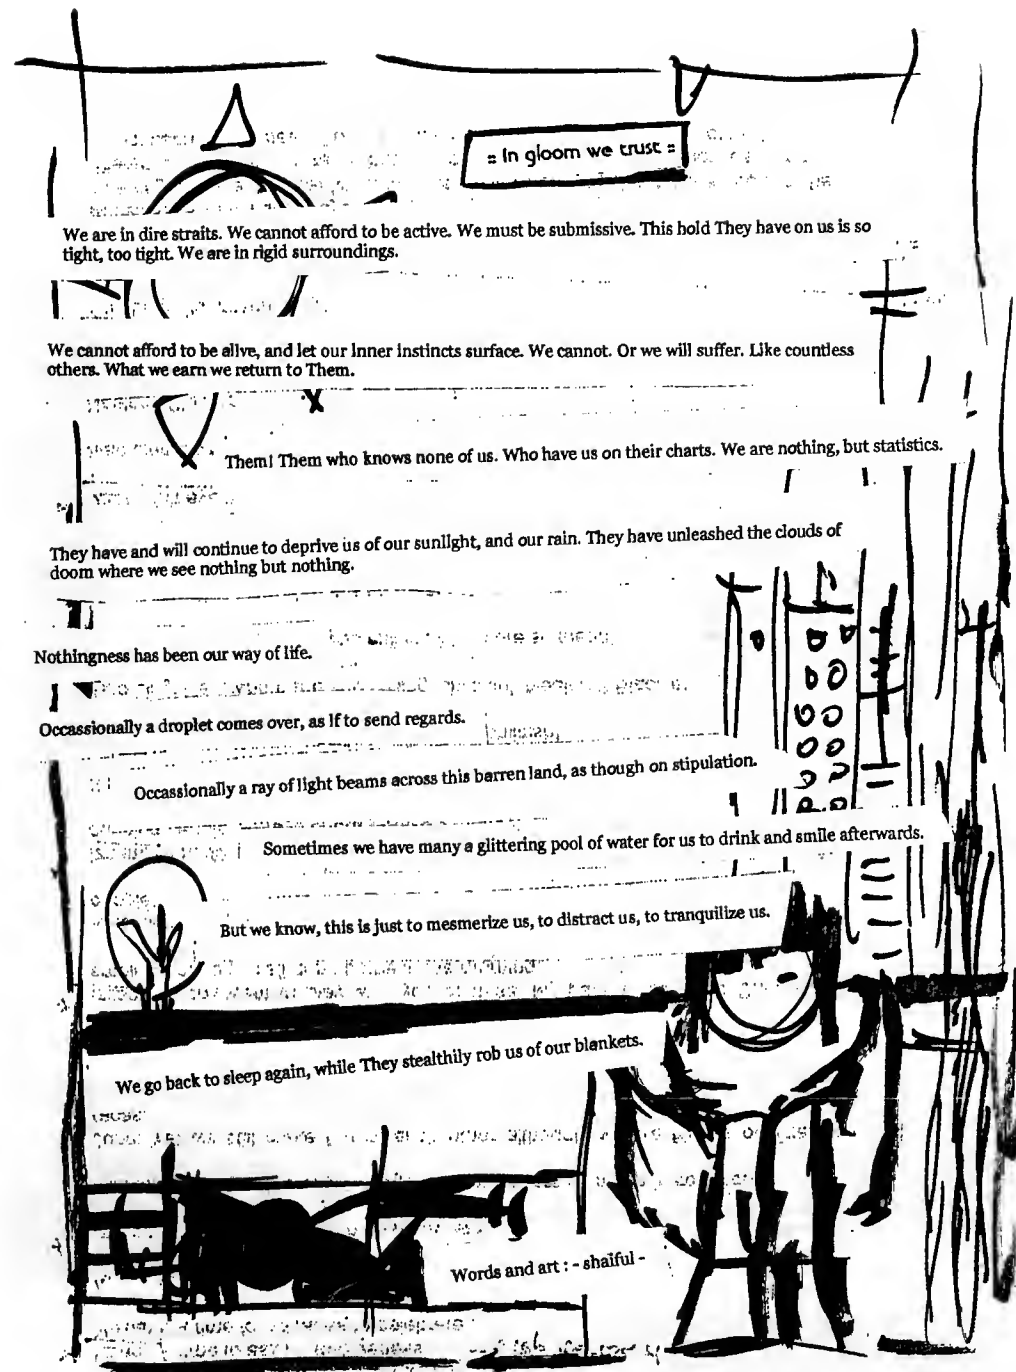 :: In gloom we trust ::
We are in dire straits. We cannot afford to be active. We must be submissive. This hold They have on us is so
tight, too tight. We are in rigid surroundings.
We cannot afford to be alive, and let our inner instincts surface. We cannot. Or we will suffer. Like countless
others. What we earn we return to Them.
Them! Them who knows none of us. Who have us on their charts. We are nothing, but statistics.
They have and will continue to deprive us of our sunlight, and our rain. They have unleashed the clouds of
doom where we see nothing but nothing.
Nothingness has been our way of life.
Occassionally a droplet comes over, as if to send regards.
Occassionally a ray of light beams across this barren land, as though on stipulation.
Sometimes we have many a glittering pool of water for us to drink and smile afterwards.
But we know, this is just to mesmerize us, to distract us, to tranquilize us.
We go back to sleep again, while They stealthily rob us of our blankets.
Words and art : - shaiful -